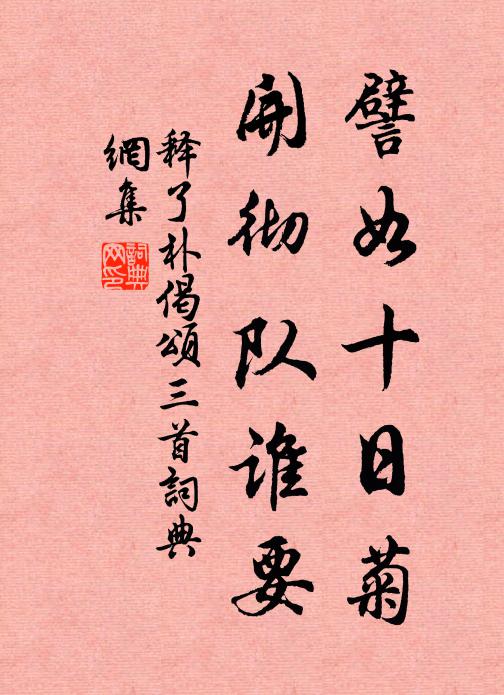 譬如十日菊
開彻队谁要
释了朴偈頌三首詞典
網集
詞典
网印